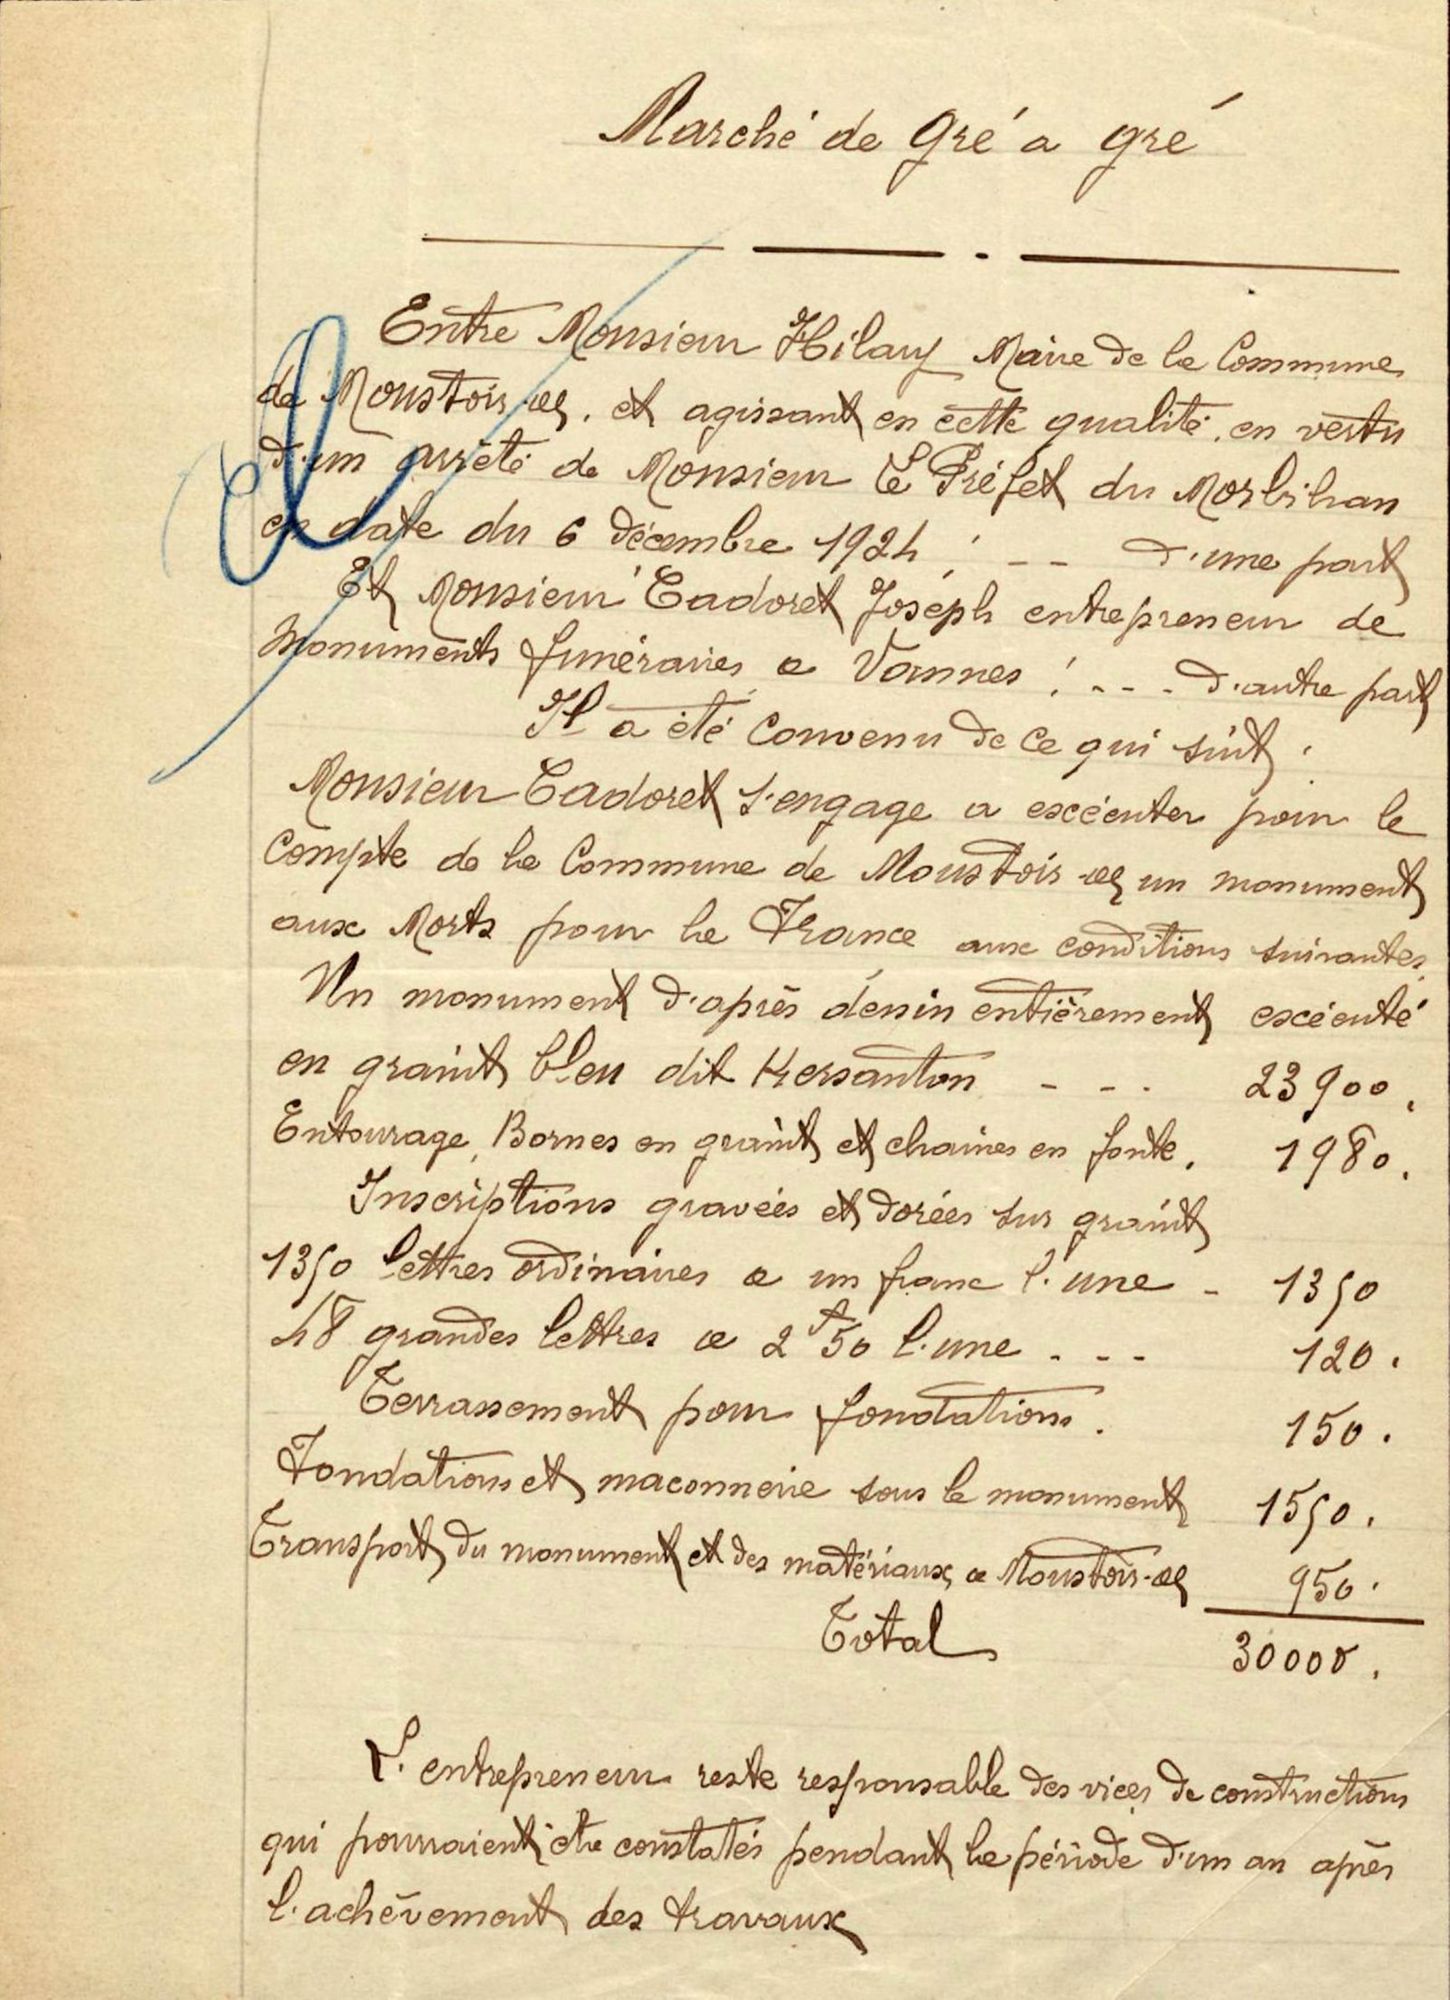 Marché de Gré a gré
Entre Monsieur Hilary Maire de la Commune
de Moustoir-ac, et agissant en cette qualité, en vertu
d'un arrêté de Monsieur Le Préfet du Morbihan
en date du 6 décembre 1924 ; - - d'une part
Et Monsieur Cadoret Joseph entrepreneur de
Monuments funéraires a Vannes ; - - - d'autre part
Il a été convenu de ce qui suit.
Monsieur Cadoret s'engage a excéenter pour le
Compte de la Commune de Moustoir-ac un monument
aux Morts pour la France aux conditions suivantes.
Un monument d'après dessin entièrement excéenté
en granit bleu dit Kersanton - - - 23900.
Entourage, Bornes en granit et chaines en fonte. 1980.
Inscriptions gravées et dorées sur granit
1350 lettres ordinaires a un franc l'une - 1350
48 grandes lettres a 2f50 l'une - - - 120.
Terrassement pour fondations. 150.
Fondations et maconnerie sous le monument 1550.
Transport du monument et des matériaux a Moustoir-ac 950.
Total 30000.
L'entrepreneur reste responsable des vices de constructions
qui pourraient être constatés pendant la période d'un an après
l'achèvement des travaux